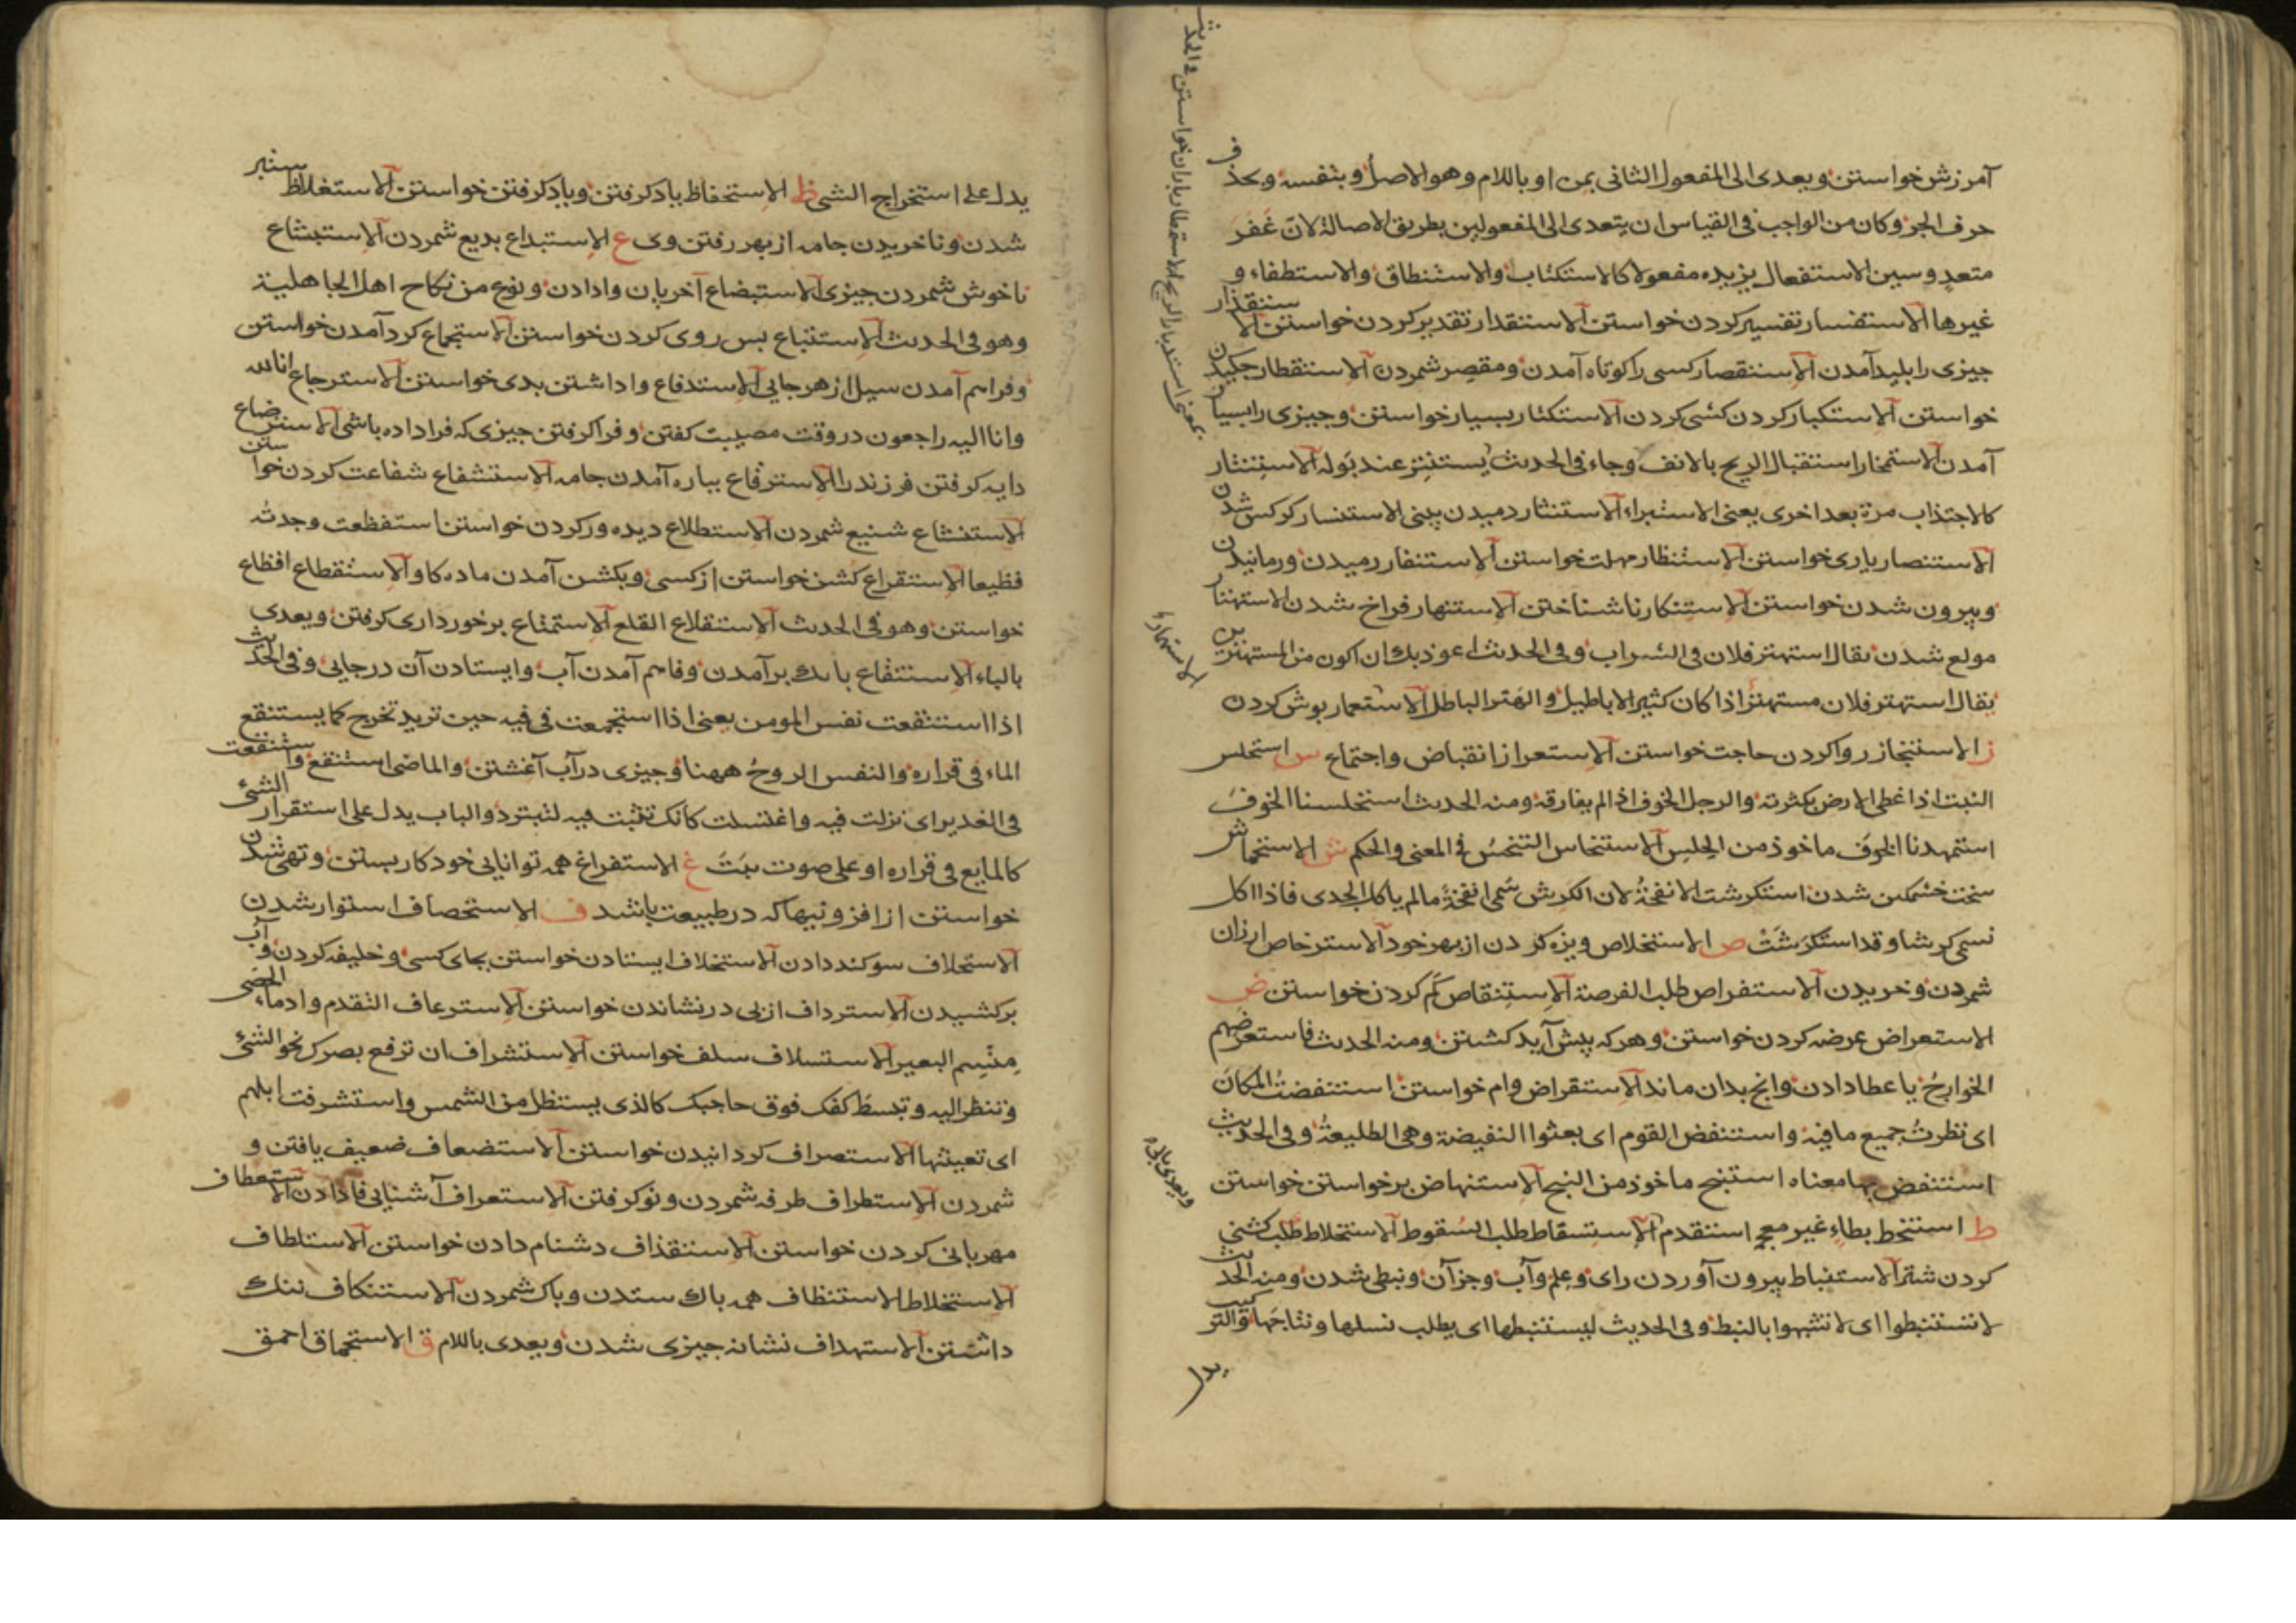 آمرزش خواستن ويعدى الى المفعول الثانى بمن او باللام وهو الاصل وبنفسه وبحذف
حرف الجر وكان من الواجب فى القياس ان يتعدى الى المفعولين بطريق الاصالة لانّ غَفَرَ
متعدٍ وسين الاستفعال يزيده مفعولا كالاستكتاب والاستنطاق والاستطفاء و
غيرها الاستفسار تفسير كردن خواستن الاستقدار تقدير كردن خواستن الاستقذار
چيزى را پليد آمدن الاستقصار كسى را كوتاه آمدن ومقصر شمردن الاستقطار چكيدن
خواستن الاستكبار كردن كشى كردن الاستكثار بسيار خواستن وچيزى را بسيار
آمدن الاستمخار استقبال الريح بالانف وجاء فى الحديث يستنتر عند بوله الاستنتار
كالاجتذاب مرة بعد اخرى يعنى الاستبراء الاستنثار دميدن بينى الاستنسار كركس شدن
الاستنصار يارى خواستن الاستنظار مهلت خواستن الاستنفار رميدن ورمانيدن
وبيرون شدن خواستن الاستنكار ناشناختن الاستنهار فراخ شدن الاستهتار
مولع شدن يقال استهتر فلان فى الشراب وفى الحديث اعوذ بك ان اكون من المستهترين
يقال استهتر فلان مستهتر اذا كان كثير الاباطيل والهتر الباطل الاستعمار پوش كردن
ز الاستنجاز روا كردن حاجت خواستن الاستعراز انقباض واجتماع س استحلس
النبت اذا غطى الارض بكثرته والرجل الخوف اذا لم يفارقه ومنه الحديث استحلسنا الخوف
استمهدنا الخوف ماخوذ من الحلس الاستنحاس التنحس فى المعنى والحكم ش الاستحماش
سخت خشمكين شدن استكرشت الانفحة لان الكرش سُمى انفحة ما لم ياكل الجدى فاذا اكل
تسمى كرشا وقد استكرشت ص الاستخلاص ويژه كردن از بهر خود الاسترخاص ارزان
شمردن وخريدن الاستفراص طلب الفرصة الاستنقاص كم كردن خواستن ض
الاستعراض عرضه كردن خواستن وهر كه پيش آيد كشتن ومنه الحديث فاستعرضهم
الخوارج يا عطا دادن وانچ بدان ماند الاستقراض وام خواستن استنفضتُ المكان
اى نظرتُ جميع ما فيه واستنفض القوم اى بعثوا النفيضة وهى الطليعة وفى الحديث
استنفض بها معناه استنج ماخوذ من النجح الاستنهاض برخواستن خواستن
ط استنخط بطاء غير معجم استقدم الاستسقاط طلب السقوط الاستخلاط طلب كشنى
كردن شتر الاستنباط بيرون آوردن راى وعلم وآب وجز آن ونبطى شدن ومنه الحديث
لا تستنبطوا اى لا تشبهوا بالنبط وفى الحديث ليستنبطها اى يطلب نسلها ونتاجها والتركيب
يدل
يدل على استخراج الشى ظ الاستحفاظ ياد كرفتن وياد كرفتن خواستن الاستغلاظ ستبر
شدن ونا خريدن جامه از بهر رفتن وى ع الاستبداع بديع شمردن الاستبشاع
ناخوش شمردن چيزى الاستبضاع آخريان وادادن ونوع من نكاح اهل الجاهلية
وهو فى الحديث الاستتباع پس روى كردن خواستن الاستجماع كرد آمدن خواستن
وفراهم آمدن سيل از هر جايى الاستدفاع واداشتن بدى خواستن الاسترجاع انا لله
وانا اليه راجعون در وقت مصيبت كفتن وفراكرفتن چيزى كه فرا داده باشى الاسترضاع
دايه كرفتن فرزند را الاسترقاع بپاره آمدن جامه الاستشفاع شفاعت كردن خواستن
الاستشناع شنيع شمردن الاستطلاع ديده ور كردن خواستن استفظعت وجدته
فظيعا الاستقراع كشن خواستن از كسى وبكشن آمدن ماده كاو الاستقطاع اقطاع
خواستن وهو فى الحديث الاستقلاع القلع الاستمتاع برخوردارى كرفتن ويعدى
بالباء الاستنقاع بانك برآمدن وفاهم آمدن آب وايستادن آن در جايى وفى الحديث
اذا استنقعت نفس المومن يعنى اذا استجمعت فى فيه حين تريد تخرج كما يستنقع
الماء فى قراره والنفس الروح ههنا وچيزى در آب آغشتن والماضى استنقع واستنقعت
فى الغدير اى نزلت فيه واغتسلت كانك تثبت فيه لتبترد والباب يدل على استقرار الشئ
كالمايع فى قراره او على صوت مبت غ الاستفراغ همه توانايى خود كار بستن وتهى شدن
خواستن از افزونيها كه در طبيعت باشد ف الاستحصاف استوار شدن
الاستحلاف سوكند دادن الاستخلاف ايستادن خواستن بجاى كسى وخليفه كردن وآب
بركشيدن الاسترداف از پى درنشاندن خواستن الاسترعاف التقدم وادماء الحصى
منسم البعير الاستسلاف سلف خواستن الاستشراف ان ترفع بصرك نحو الشئ
وتنظر اليه وتبسط كفك فوق حاجبك كالذى يستظل من الشمس واستشرفت ابلهم
اى تعينتها الاستصراف كردانيدن خواستن الاستضعاف ضعيف يافتن و
شمردن الاستطراف طرفه شمردن ونو كرفتن الاستعراف آشنايى فا دادن الاستعطاف
مهربانى كردن خواستن الاستقذاف دشنام دادن خواستن الاستلطاف
الاستخلاط الاستنظاف همه باك ستدن وباك شمردن الاستنكاف ننك
داشتن الاستهداف نشانه چيزى شدن ويعدى باللام ق الاستحماق احمق